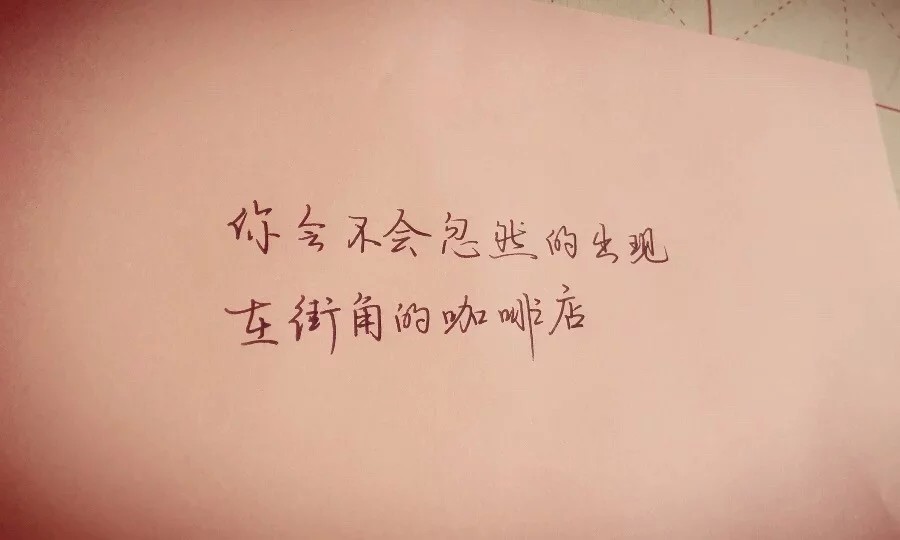 你会不会忽然的出现
在街角的咖啡店